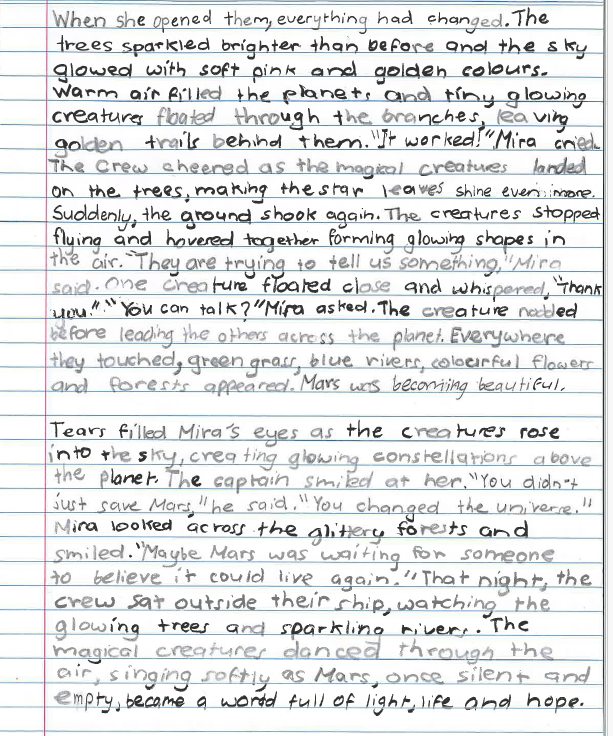 When she opened them, everything had changed. The
trees sparkled brighter than before and the sky
glowed with soft pink and golden colours.
Warm air filled the planets and tiny glowing
creatures floated through the branches, leaving
golden trails behind them. "It worked!" Mira cried.
The Crew cheered as the magical creatures landed
on the trees, making the star leaves shine even more.
Suddenly, the ground shook again. The creatures stopped
flying and hovered together forming glowing shapes in
the air. "They are trying to tell us something," Mira
said. One creature floated close and whispered, "Thank
you." "You can talk?" Mira asked. The creature nodded
before leading the others across the planet. Everywhere
they touched, green grass, blue rivers, colourful flowers
and forests appeared. Mars was becoming beautiful.

Tears filled Mira's eyes as the creatures rose
into the sky, creating glowing constellations above
the planet. The captain smiled at her. "You didn't
just save Mars," he said. "You changed the universe."
Mira looked across the glittery forests and
smiled. "Maybe Mars was waiting for someone
to believe it could live again." That night, the
crew sat outside their ship, watching the
glowing trees and sparkling rivers. The
magical creatures danced through the
air, singing softly as Mars, once silent and
empty, became a world full of light, life and hope.